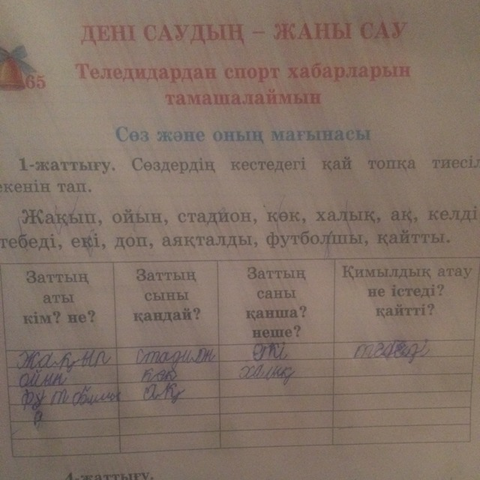 65
ДЕНІ САУДЫҢ – ЖАНЫ САУ
Теледидардан спорт хабарларын
тамашалаймын
Сөз және оның мағынасы
1-жаттығу. Сөздердің кестедегі қай топқа тиесіл
екенін тап.
Жақып, ойын, стадион, көк, халық, ақ, келді
тебеді, екі, доп, аяқталды, футболшы, қайтты.
Заттың аты кім? не?
Заттың сыны қандай?
Заттың саны қанша? неше?
Қимылдық атау не істеді? қайтті?
Жақып стадион екі тебеді
ойын көк халық
футболшы ақ
4-жаттығу.